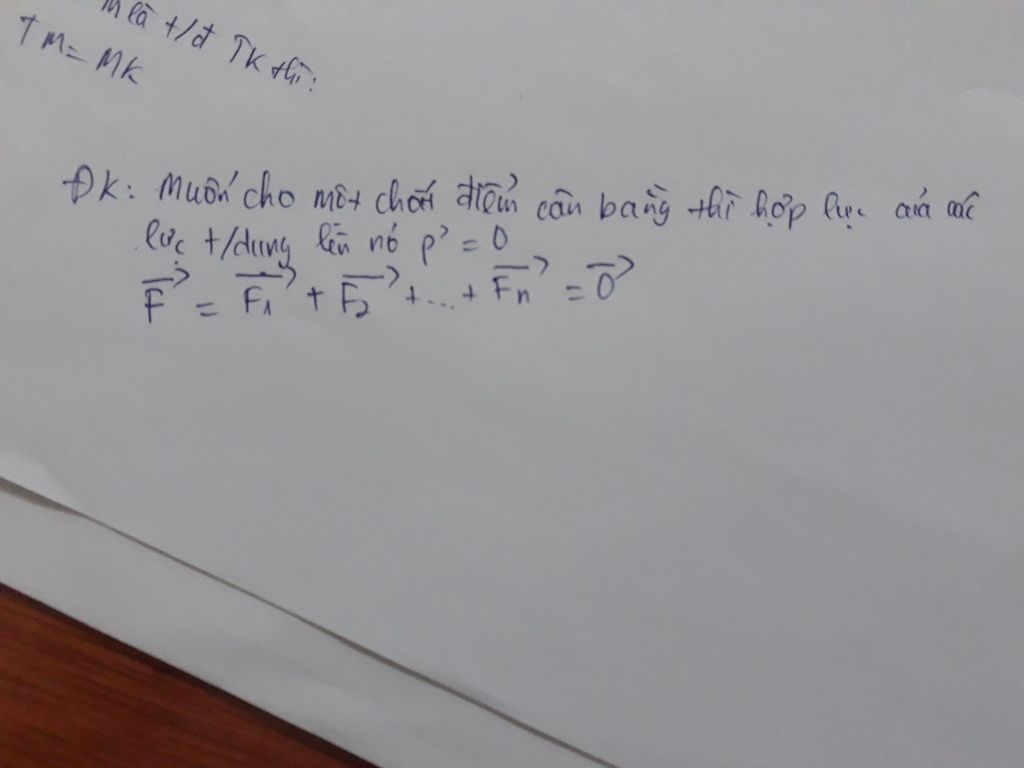 M là t/đ TK thì:
TM = MK
ĐK: Muốn cho một chất điểm cân bằng thì hợp lực của các
lực t/dụng lên nó p' = 0
F⃗ = F₁⃗ + F₂⃗ + ... + Fₙ⃗ = 0⃗